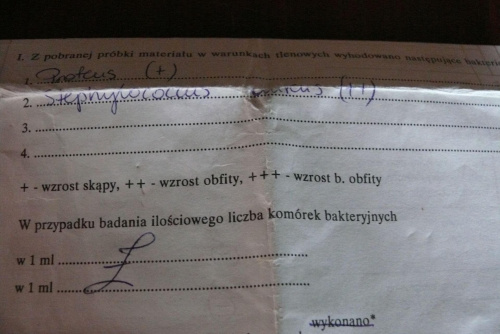 I. Z pobranej próbki materiału w warunkach tlenowych wyhodowano następujące bakterie
1. Proteus (+)
2. (++)
3.
4.
+ - wzrost skąpy, ++ - wzrost obfity, +++ - wzrost b. obfity
W przypadku badania ilościowego liczba komórek bakteryjnych
w 1 ml
w 1 ml
wykonano*